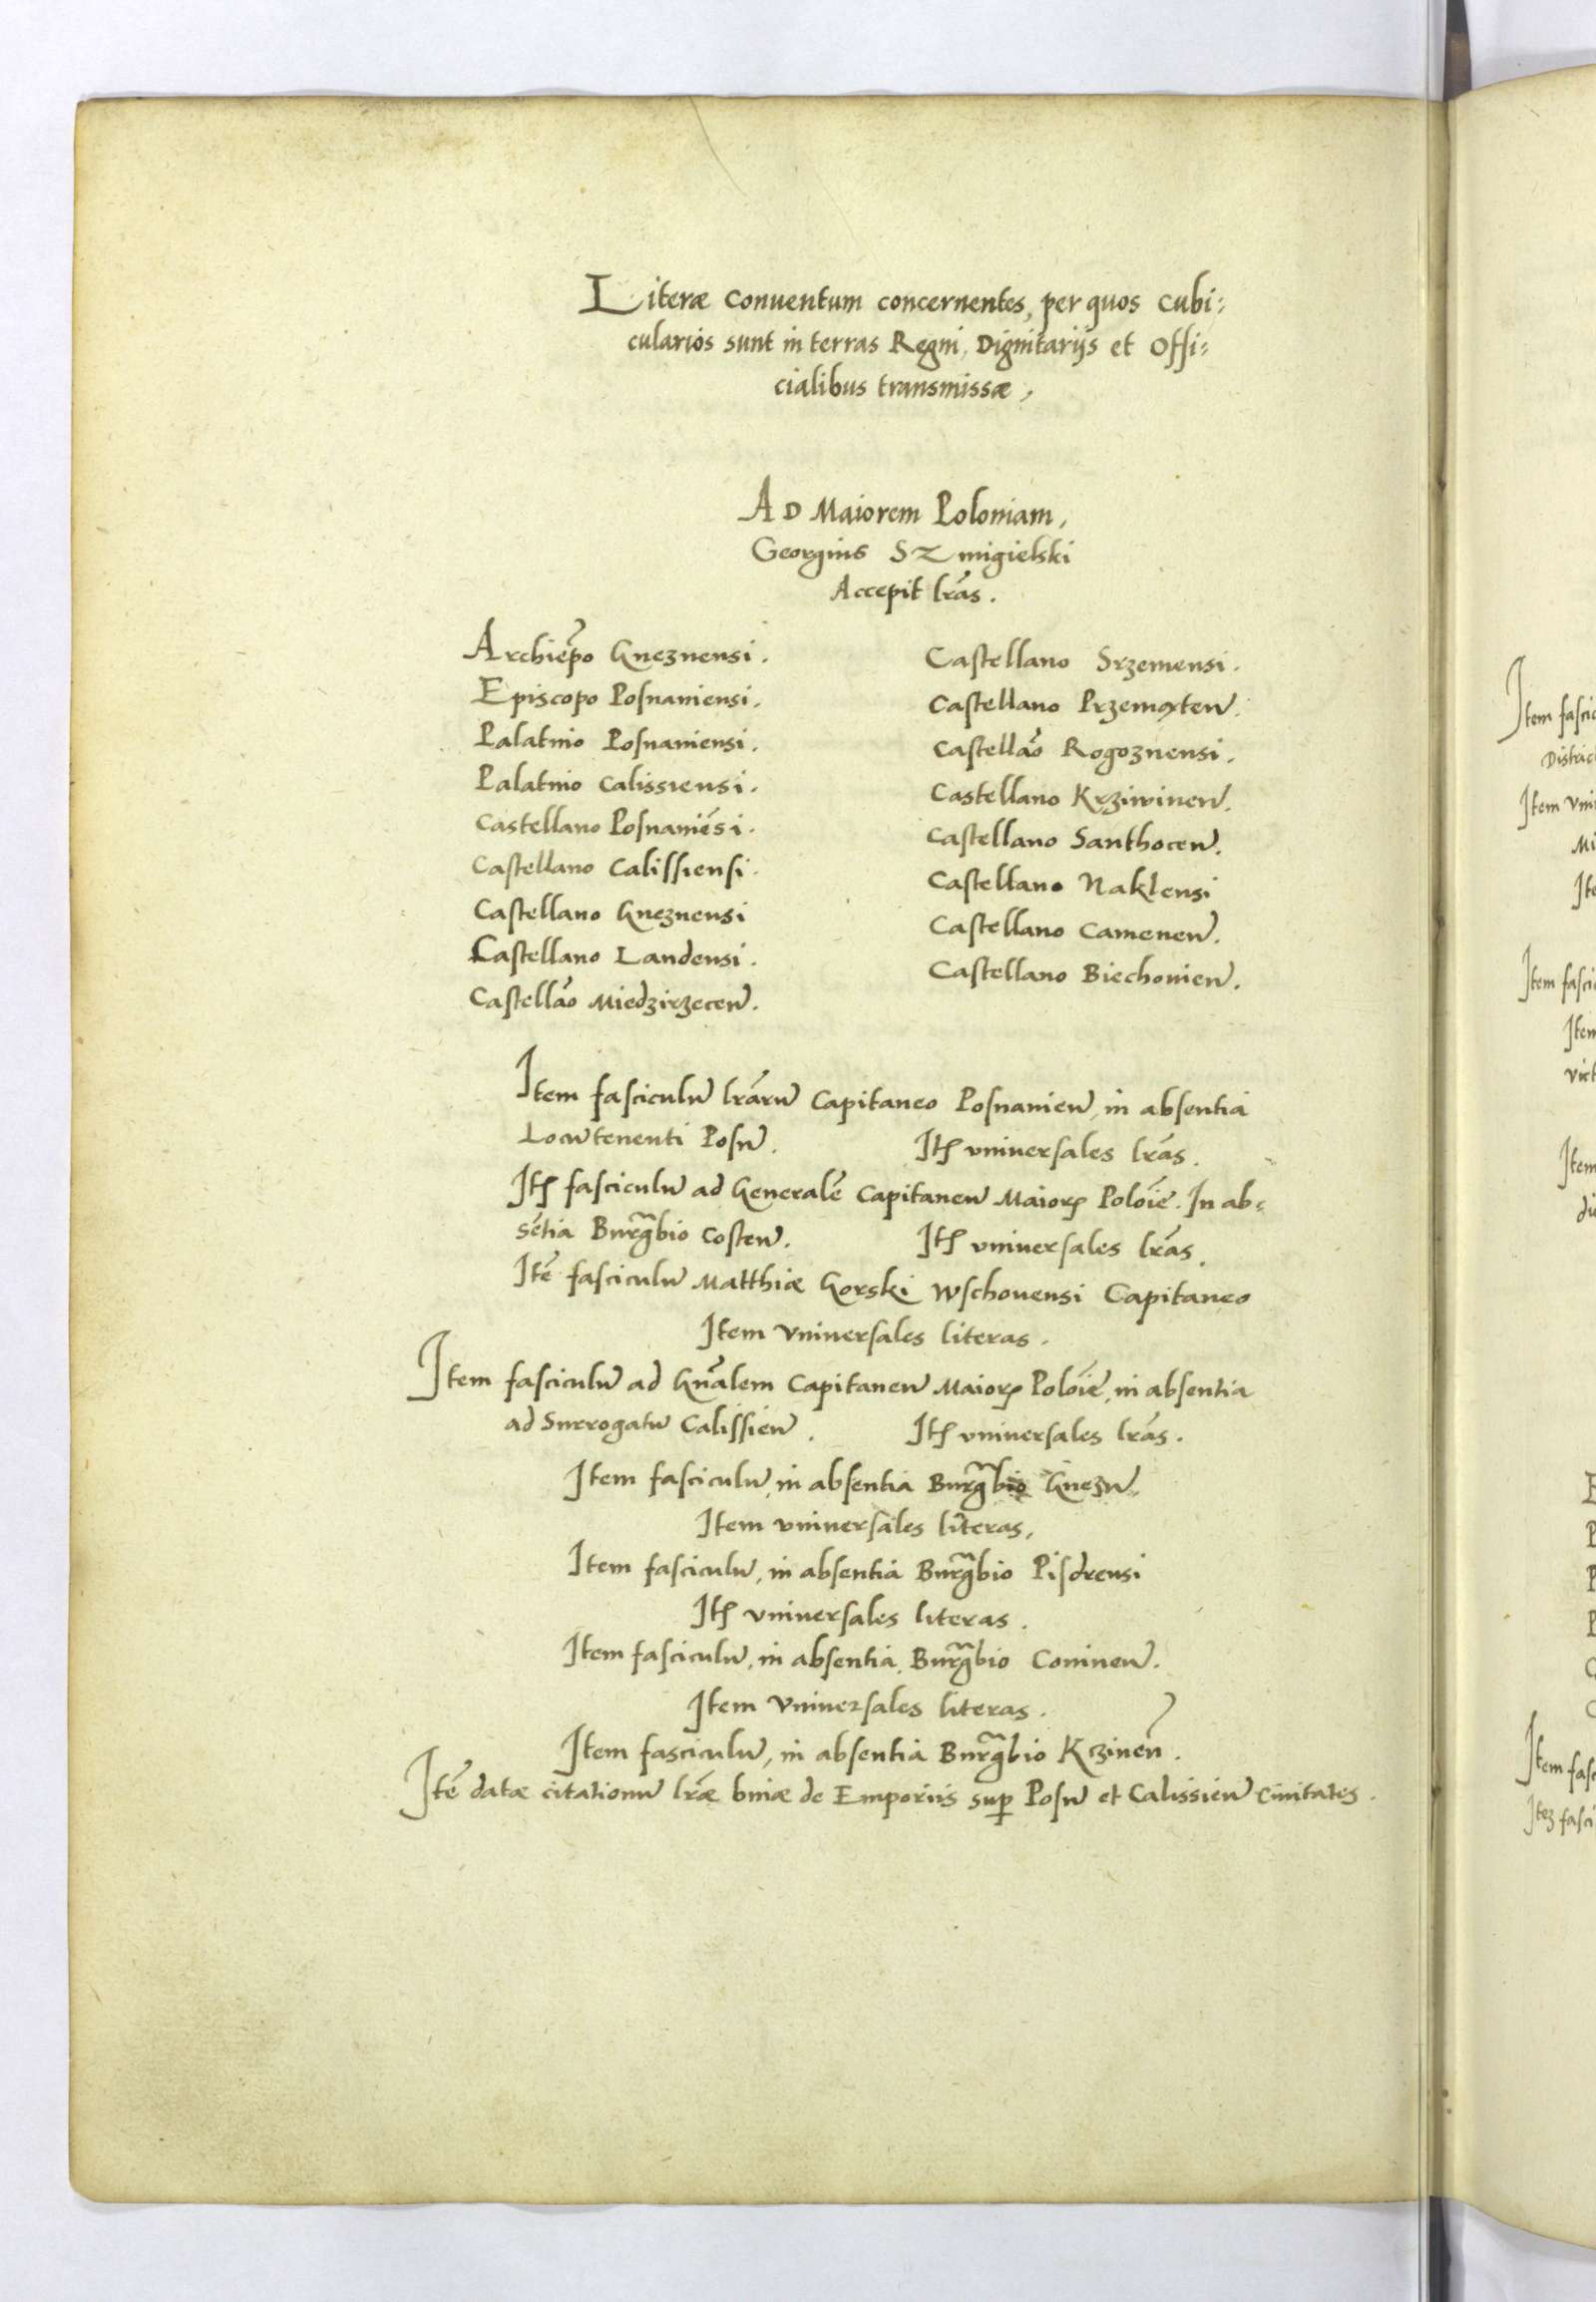 Literæ Conuentum concernentes, per quos Cubi:
cularios sunt in terras Regni, Dignitarijs et Offi:
cialibus transmissæ,
AD Maiorem Poloniam,
Georgius Szmigielski
Accepit lrãs.
Archiep̃o Gneznensi.
Episcopo Posnaniensi.
Palatino Posnaniensi.
Palatino Calissiensi.
Castellano Posnaniẽsi.
Castellano Calissiensi.
Castellano Gneznensi
Castellano Landensi.
Castellão Miedzirzecen̄.
Castellano Srzemensi.
Castellano Przemẏten̄.
Castellão Rogoznensi.
Castellano Krziwinen̄.
Castellano Santhocen̄.
Castellano Naklensi
Castellano Camenen̄.
Castellano Biechouien̄.
Item fasciculū lrãrū Capitaneo Posnanien̄, in absentia
Locūtenenti Posn̄.
Itꝫ vniuersales lrãs.
Itꝫ fasciculū ad Generalẽ Capitaneū Maioris Polõie. In ab:
sẽtia Burg̃bio Costen̄.
Itꝫ vniuersales lrãs.
Itẽ fasciculū Matthiæ Gorski Wschouensi Capitaneo
Item vniuersales literas.
Item fasciculū ad Gñalem Capitaneū Maioris Polõie, in absentia
ad Surrogatū Calissien̄.
Itꝫ vniuersales lrãs.
Item fasciculū, in absentia Burg̃bio Gnezn̄.
Item vniuersales literas,
Item fasciculū, in absentia Burg̃bio Pisdrensi
Itꝫ vniuersales literas.
Item fasciculū, in absentia Burg̃bio Coninen̄.
Item vniuersales literas.
Item fasciculū, in absentia Burg̃bio Kczineñ.
Itẽ datæ citationū lræ̃ binæ de Emporiis suꝑ Posn̄ et Calissien̄ Ciuitates.
Item fasci
Item vni
Item fasci
Item
Item fasc
Itez fasci